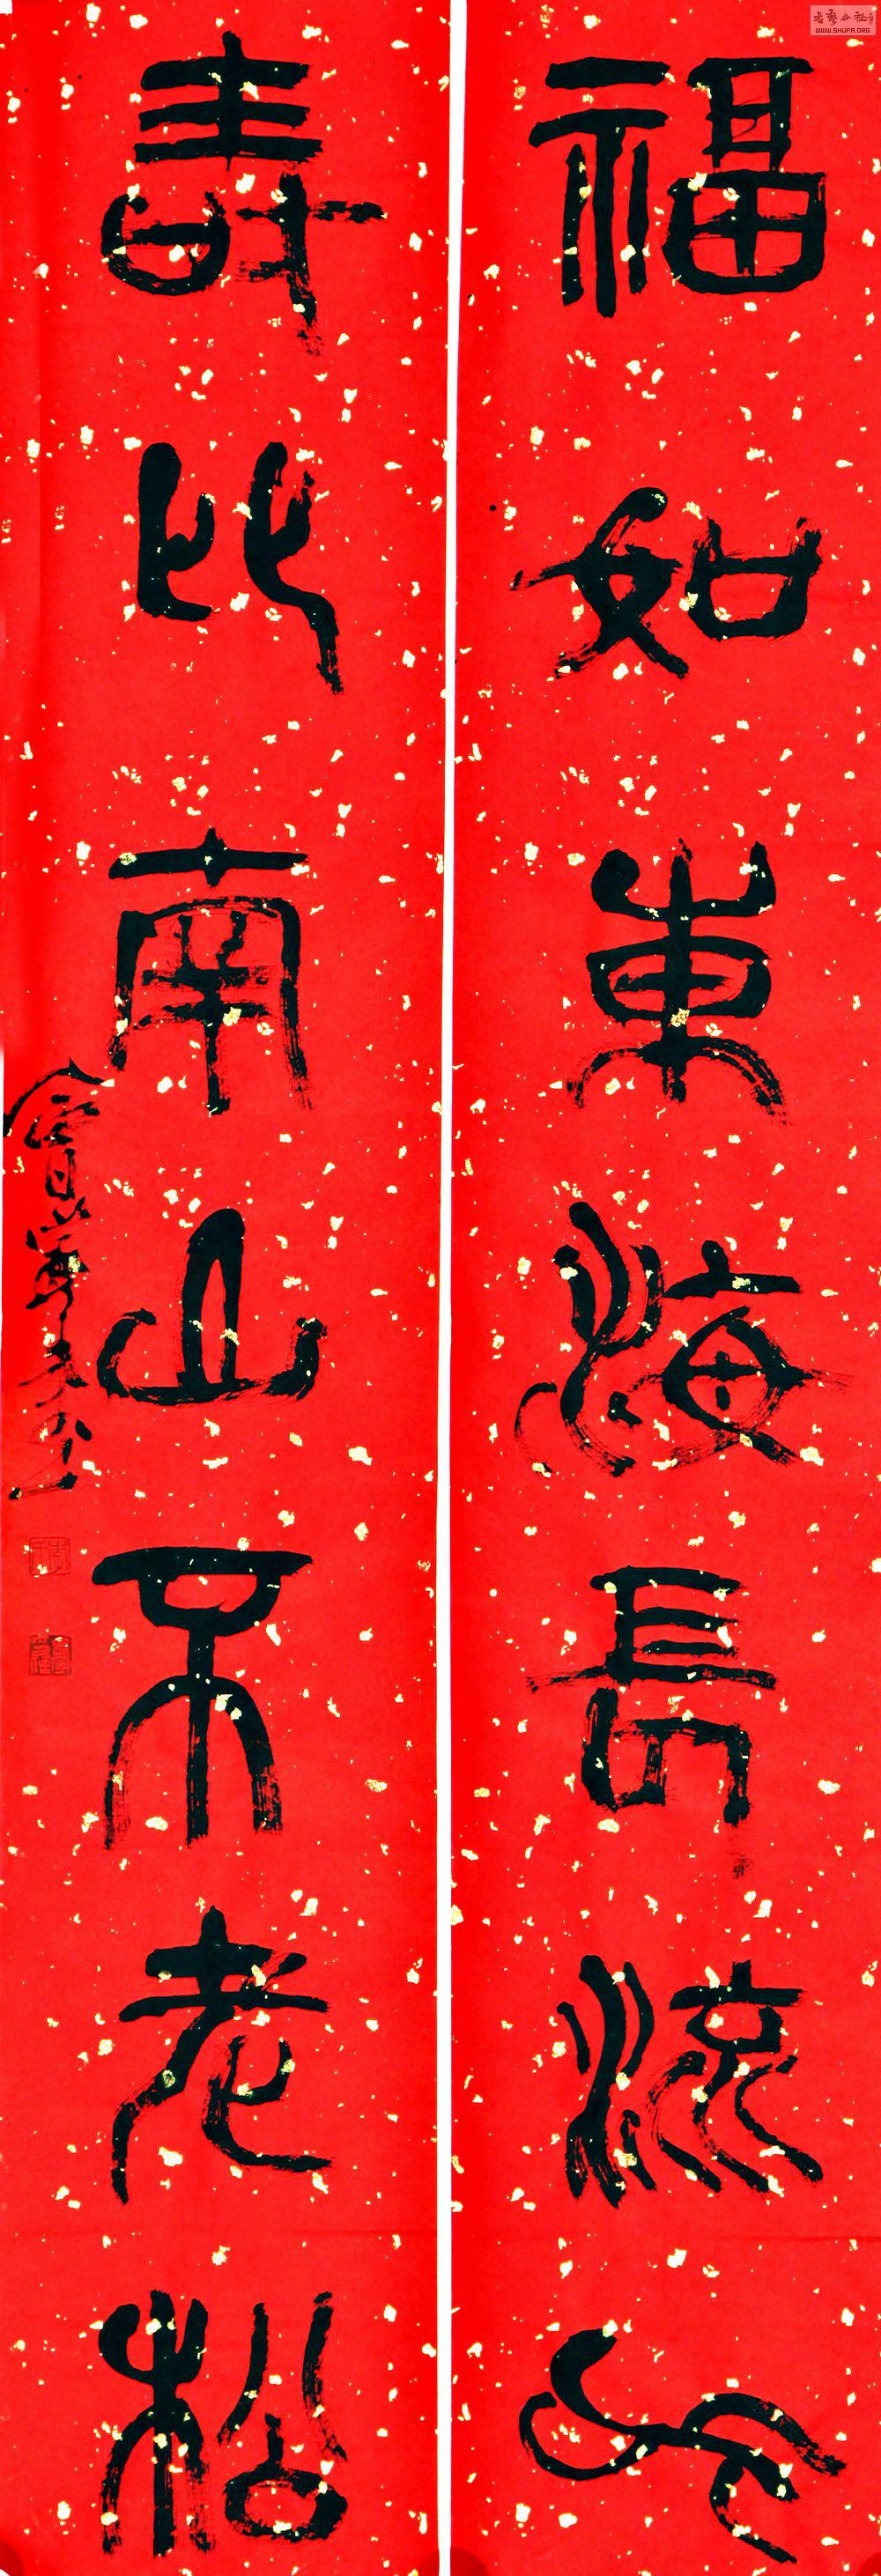 福如東海長流水
壽比南山不老松
WWW.SHUFA.ORG